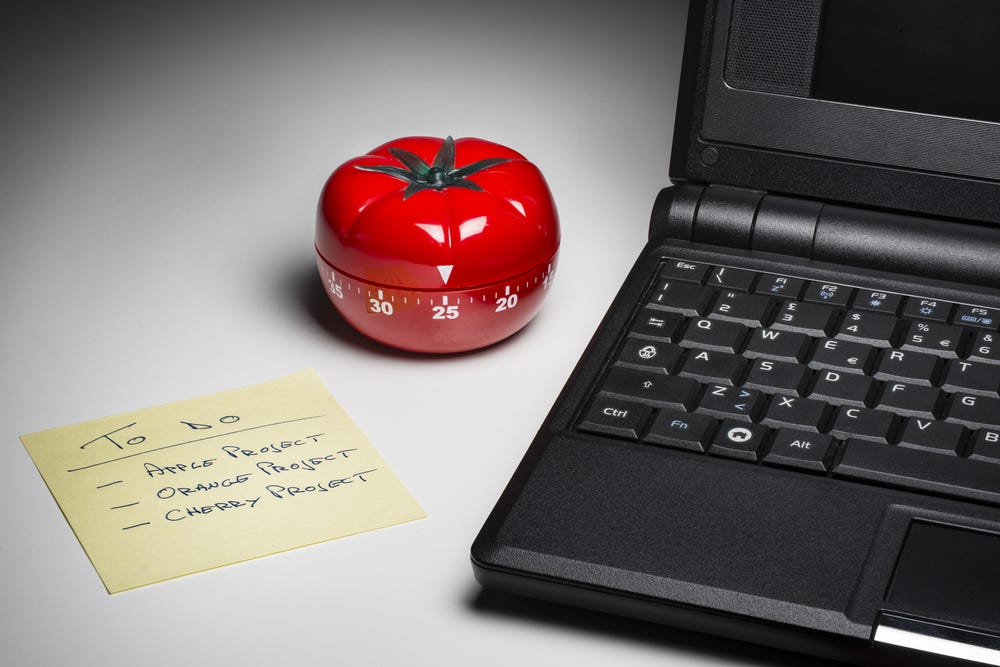 To Do
- Apple Project
- Orange Project
- Cherry Project
35 30 25 20 15
Esc \ | F1 F2 F3 F4 F5
! 1 " 2 £ 3 $ 4 % 5 € & 6
Q W E € R T
A S D F G
Z X C V B
Ctrl Fn Alt